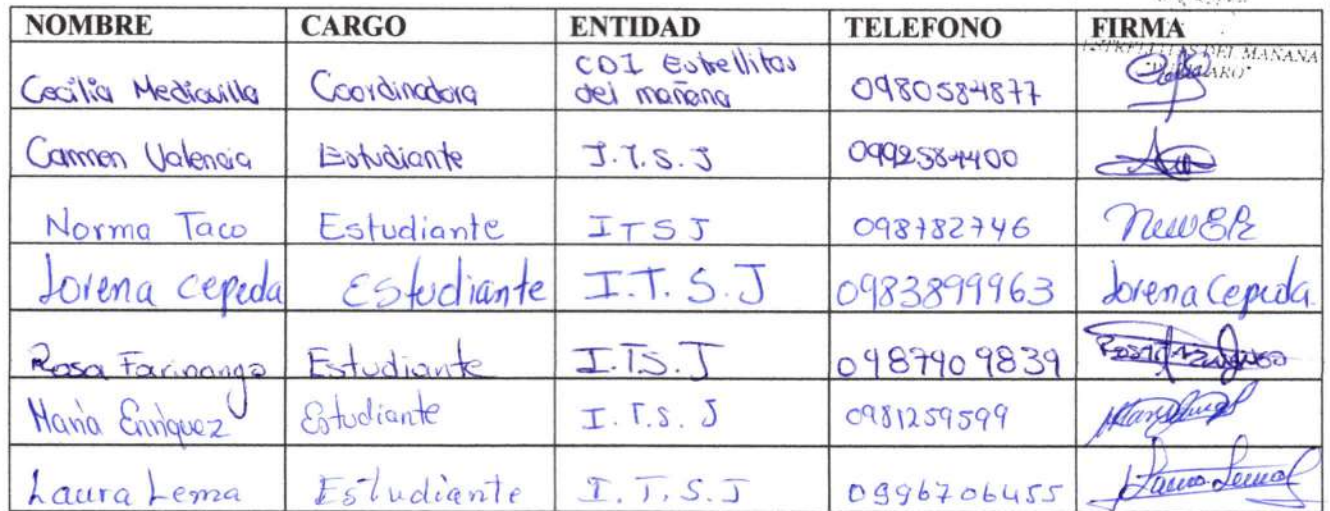 NOMBRE CARGO ENTIDAD TELEFONO FIRMA
ESTRELLITAS DEL MAÑANA
Cecilia Mediavilla Coordinadora CDI Estrellitas del mañana 0980584877
Carmen Valencia Estudiante I.T.S.J 0992584400
Norma Taco Estudiante ITSJ 098782746
Lorena Cepeda Estudiante I.T.S.J 0983899963 Lorena Cepeda
Rosa Farinango Estudiante I.T.S.J 0987909839
Maria Enriquez Estudiante I.T.S.J 0981259599
Laura Lema Estudiante I.T.S.J 0996706455 Laura Lema